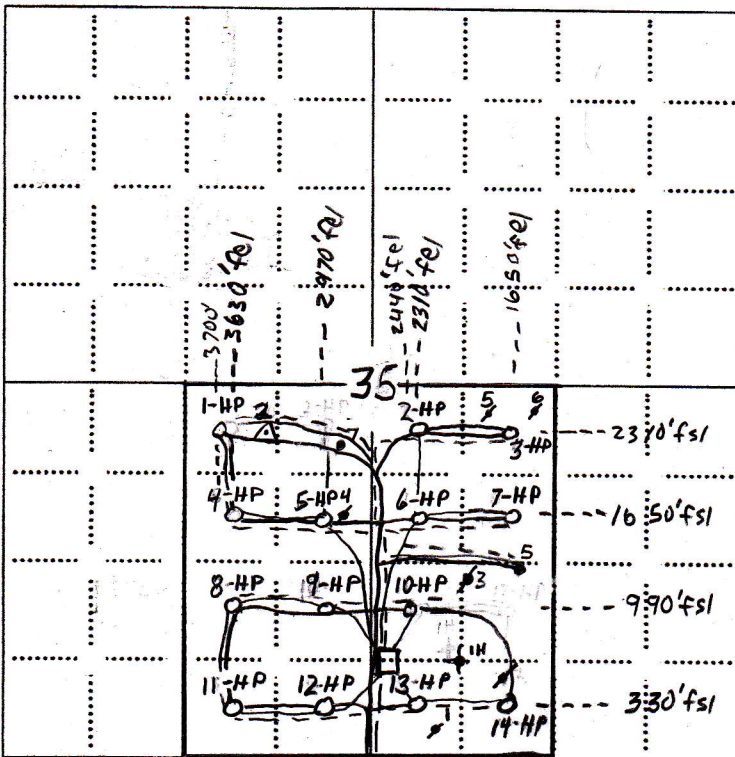 3700'
3630'fel
2970'fel
2440'fel
2310'fel
1650'fel
35
1-HP 2 2-HP 5 6
3-HP 2310'fsl
4-HP 5-HP 4 6-HP 7-HP 1650'fsl
5
8-HP 9-HP 10-HP 3 990'fsl
1H
11-HP 12-HP 13-HP 1 14-HP 330'fsl